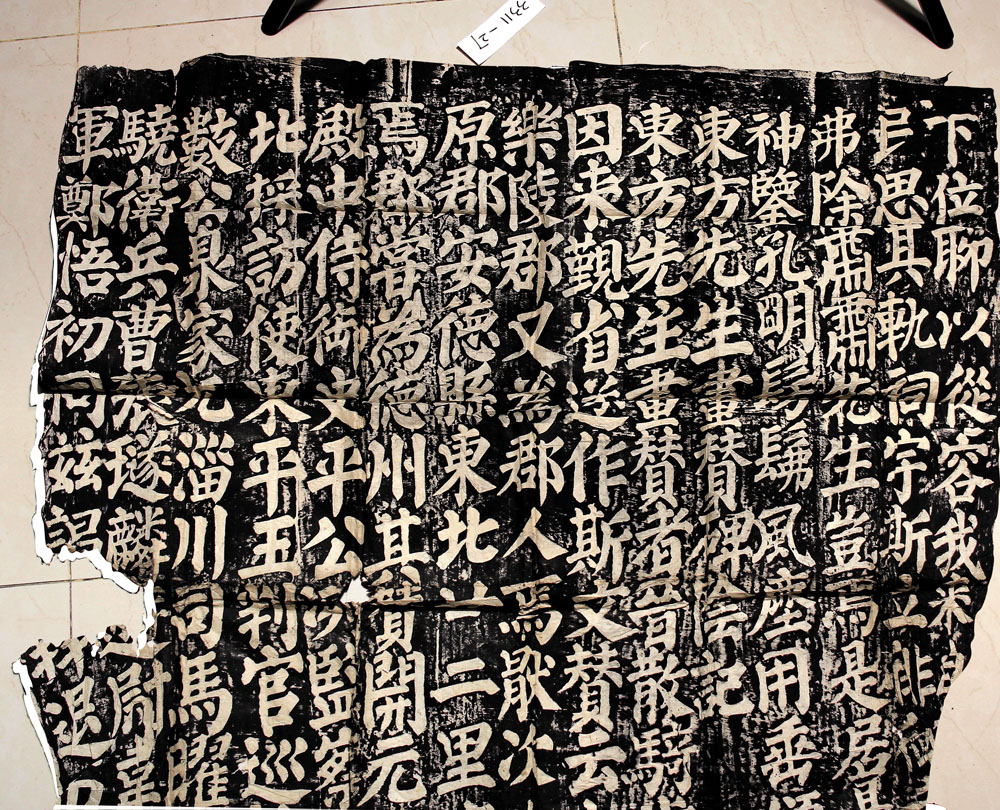 3311-27
下位聊以從容我来
民思其軌祠宇斯立
弗除肅肅先生豈焉是居
神鑒孔明髣髴風塵用垂
東方先生畫贊碑陰記
東方先生畫贊者晉散騎
因来覲省遂作斯文贊云
樂陵郡又為郡人焉厭次
原郡安德縣東北廿二里
焉郡嘗為德州其贊開元
殿中侍御史平公冽監察
北採訪使東平王判官巡
數公泉家兄淄川司馬曜
驍衛兵曹張璲麟遊尉韋
軍鄭悟初同茲謁拜退